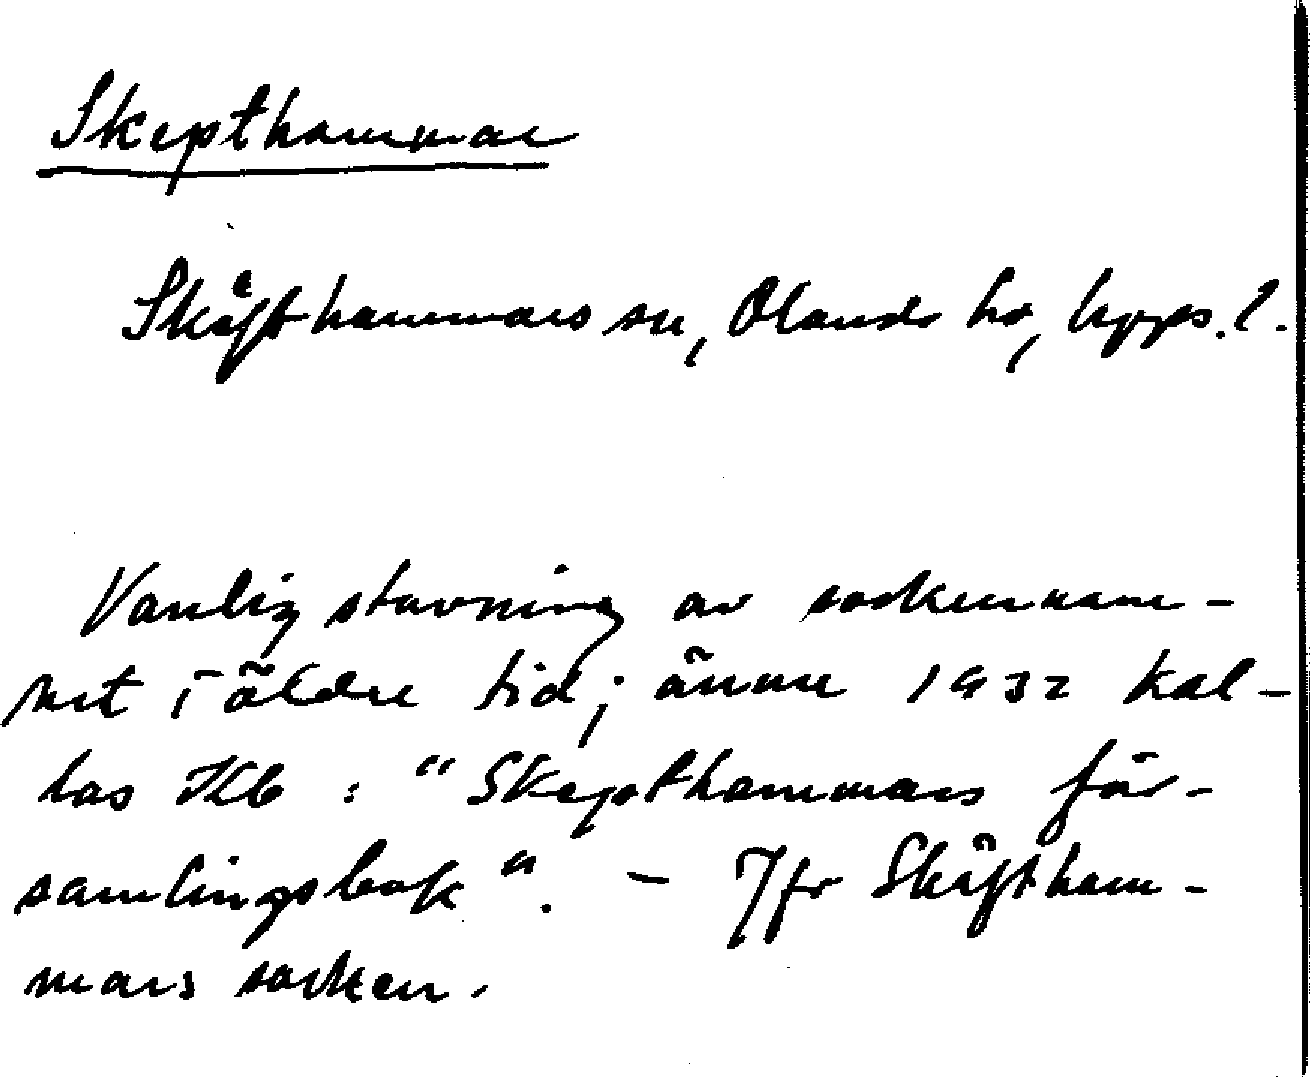 Skepthammar
Skäfthammars sn, Olands hd, Upps. l.
Vanlig stavning av sockennam-
net i äldre tid; ännu 1932 kal-
las Kb : "Skepthammars för-
samlingsbok". - Jfr Skäftham-
mars socken.